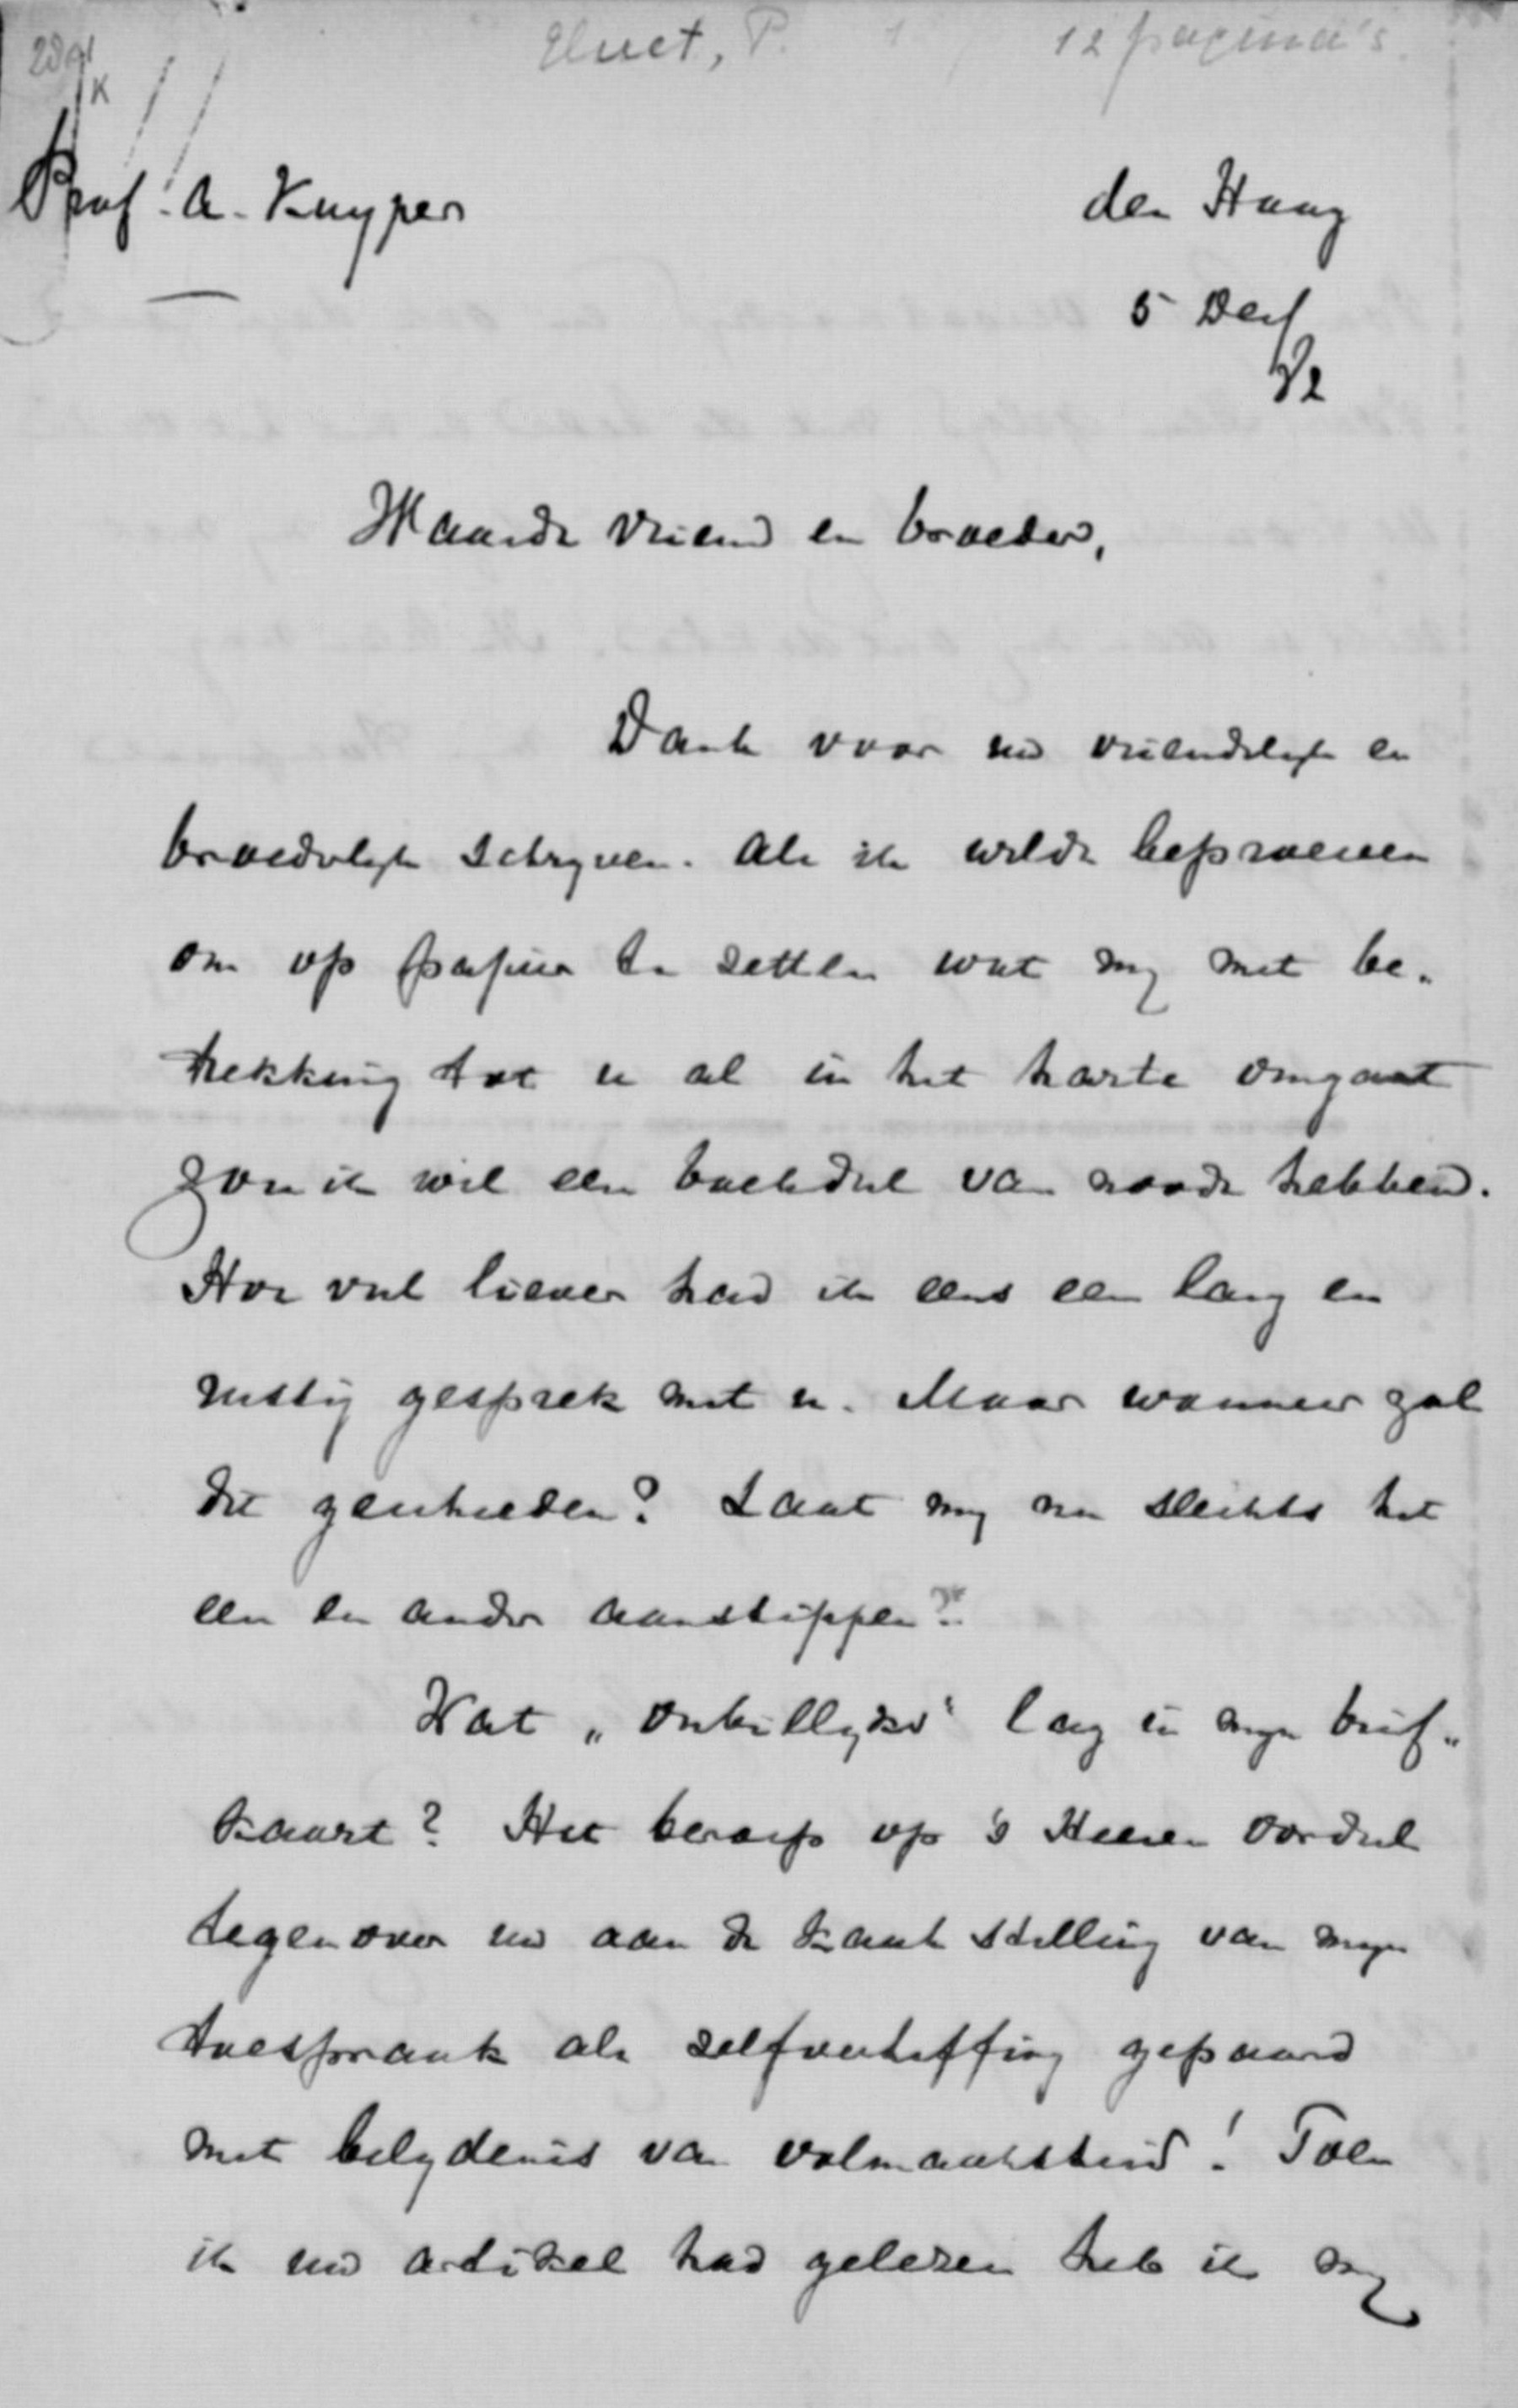 Huet, P. 12 pagina's
Prof. A. Kuyper
den Haag
5 Dec/
82
Waarde vriend en broeder,
Dank voor uw vriendelijk en
broederlijk schrijven. Als ik wilde beproeven
om op papier te zetten wat mij met be-
trekking tot u al in het harte omgaat
zou ik wel een boekdeel van noode hebben.
Hoe veel liever had ik eens een lang en
rustig gesprek met u. Maar wanneer zal
dit geschieden? Laat mij nu slechts het
een en ander aanstippen.
Wat „onbillijks" lag in mijn brief-
kaart? Het beroep op 's Heeren oordeel
tegenover uw aan de kaak stelling van mijn
toespraak als zelfverheffing gepaard
met belijdenis van volmaaktheid! Toen
ik uw artikel had gelezen heb ik mij